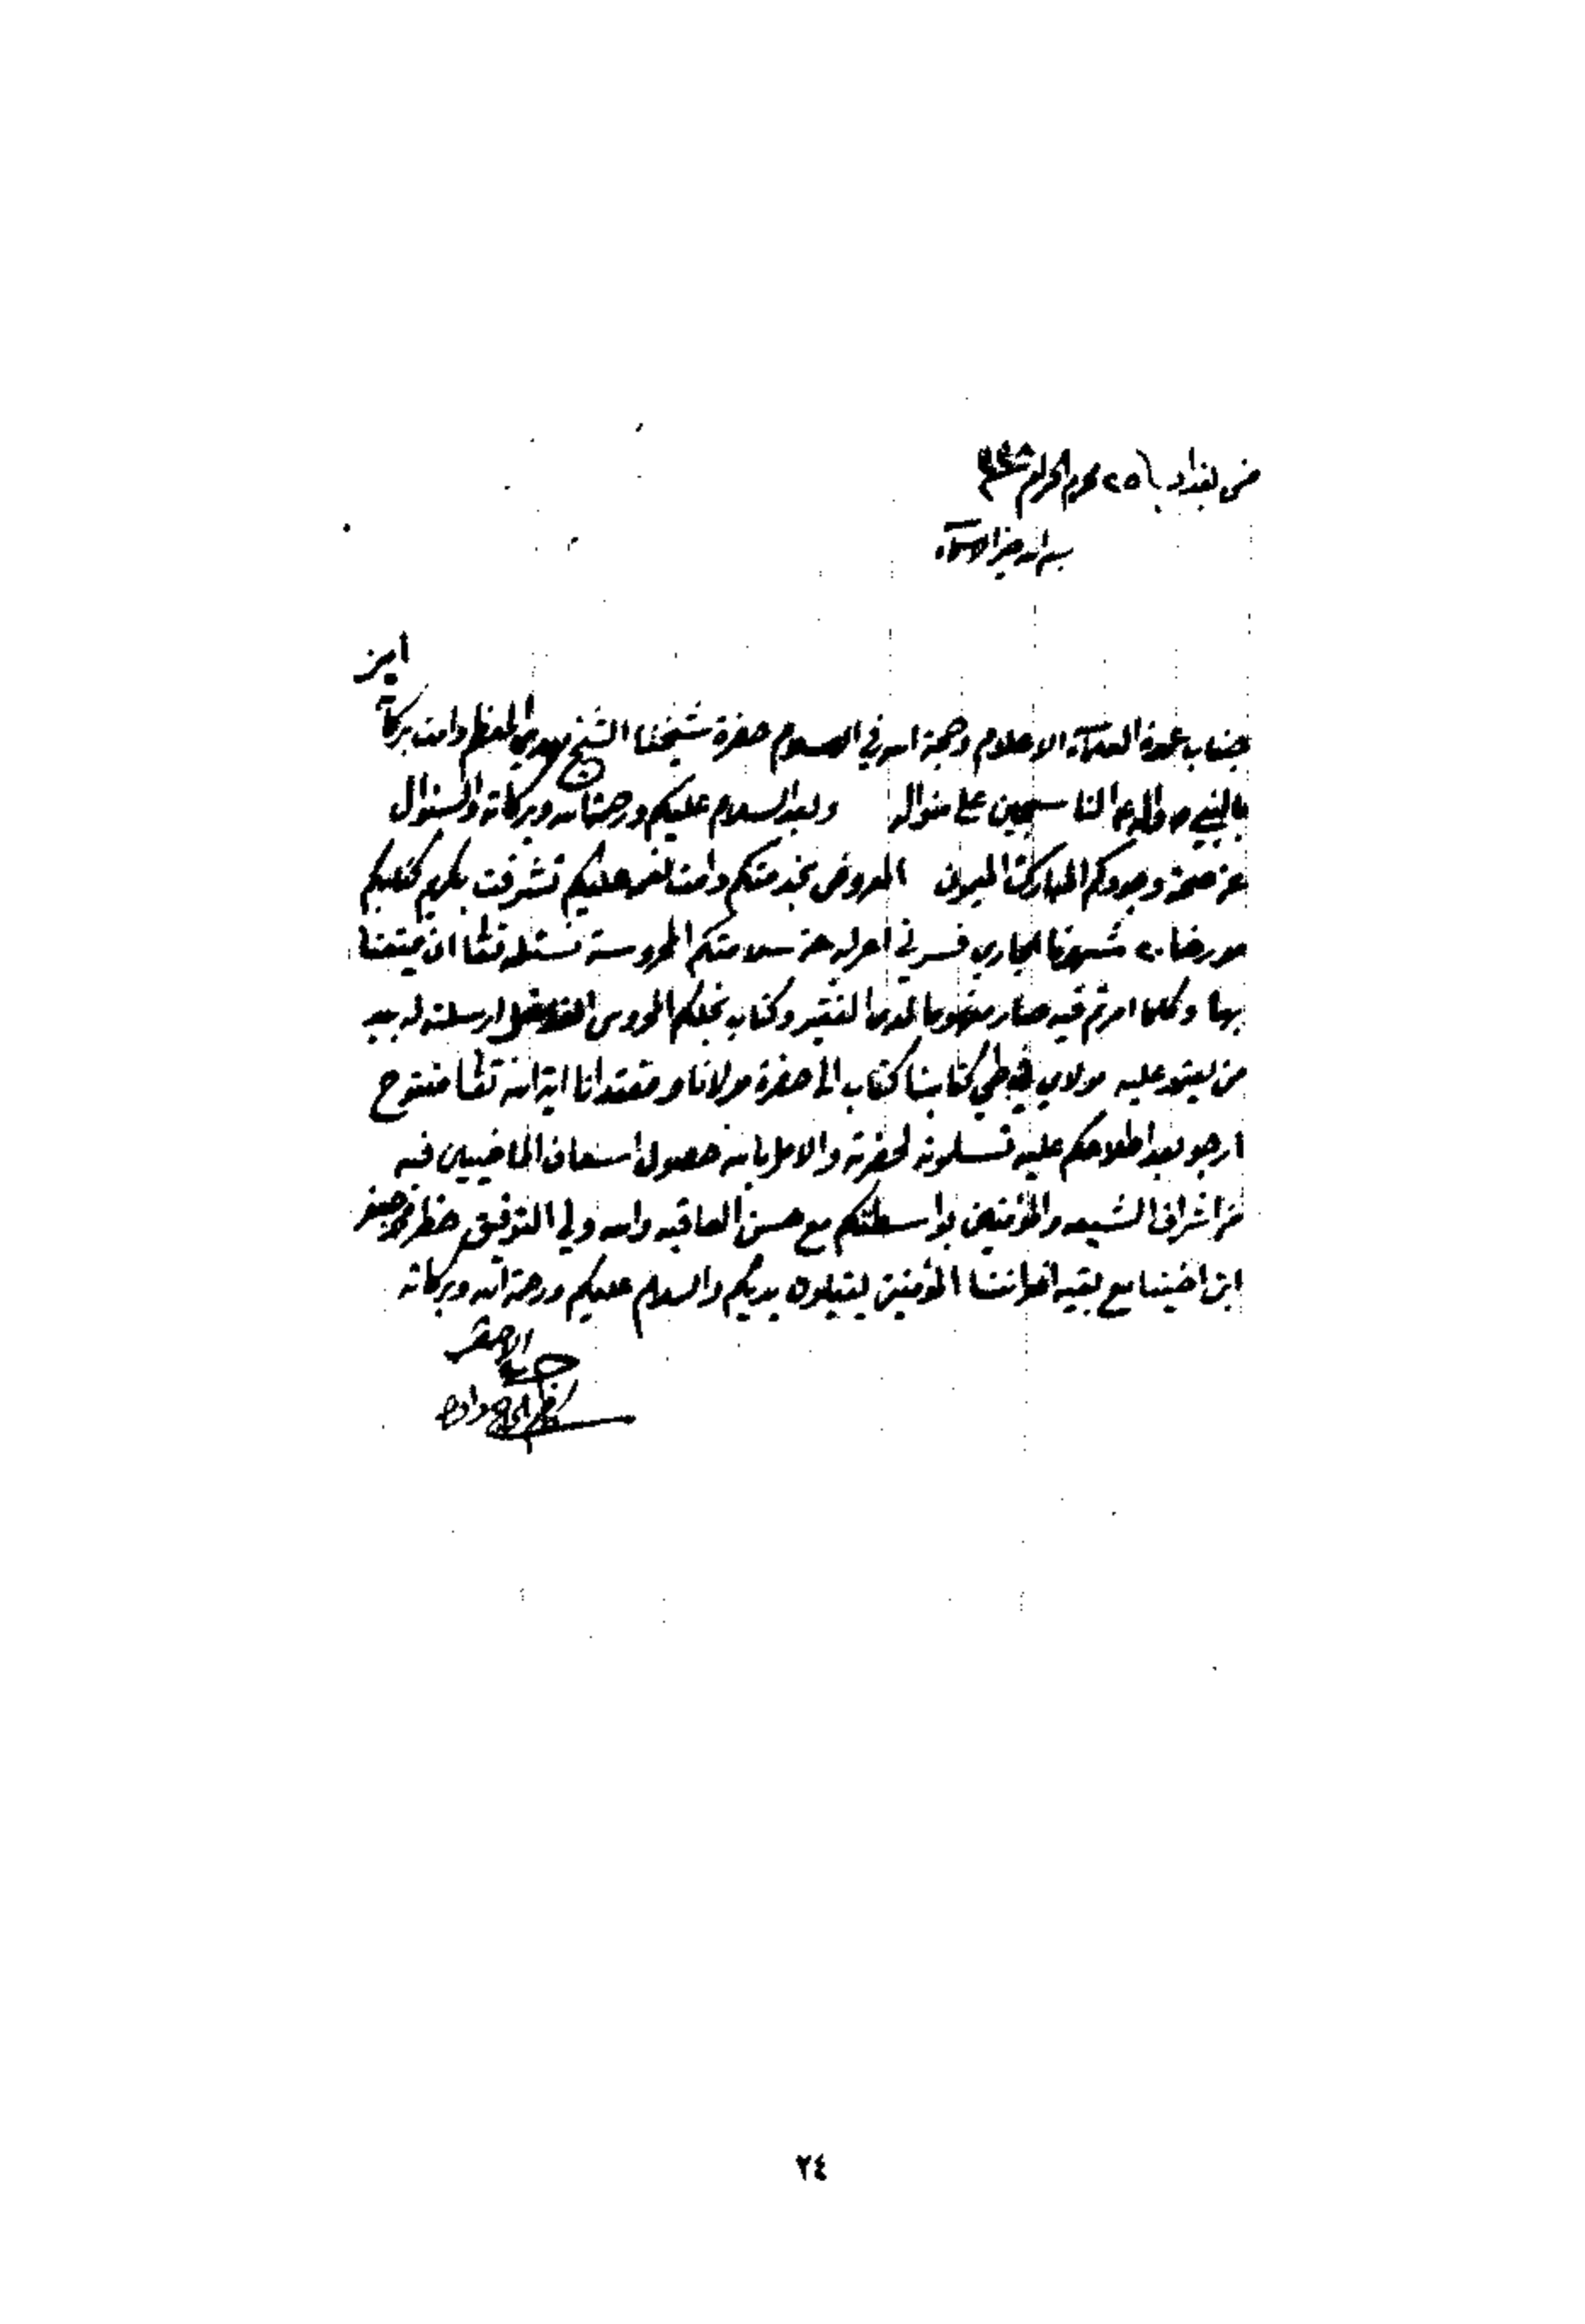 من بغداد ٢٥ محرم الحرام
بسم الله خير الاسماء
جناب عمدة العلماء الاعلام وحجة الله في الاسلام حضرة شيخنا الشيخ مهدي المعظم دامت بركاته
بالنبي واله الناسجين على منواله وبعد السلام عليكم ورحمة الله وبركاته والسؤال
عن صحة وجودكم المبارك الميمون المعروض بخدمتكم دامت نعم عليكم تشرفت بكريم كتابكم
مورخا ٢٠ شهرنا الجاري فسرني اعرابه عن سلامتكم المحروسة نسئله تعالى ان يمتعنا
بها وكلما امرتم فيه صار مفهوما لمحبكم وكتاب نجلكم المحروس ارسلته له بيد
من يعتمد عليه مولاي في طي كتابنا كتاب الى حضرة مولانا ومقتدانا اية الله تعالى مفتوح
ارجو بعد اطلاعكم عليه تسلمونه لحضرته والامل بالله حصول اسعاف الماضيين فيه
من اشراف الشيعه والمؤمنين بواسطتكم مع حسن العاقبه والله ولي التوفيق جعفر
ابن اخينا مع بقية اخواننا المؤمنين يقبلون يديكم والسلام عليكم ورحمة الله وبركاته
الاحقر
٢٤